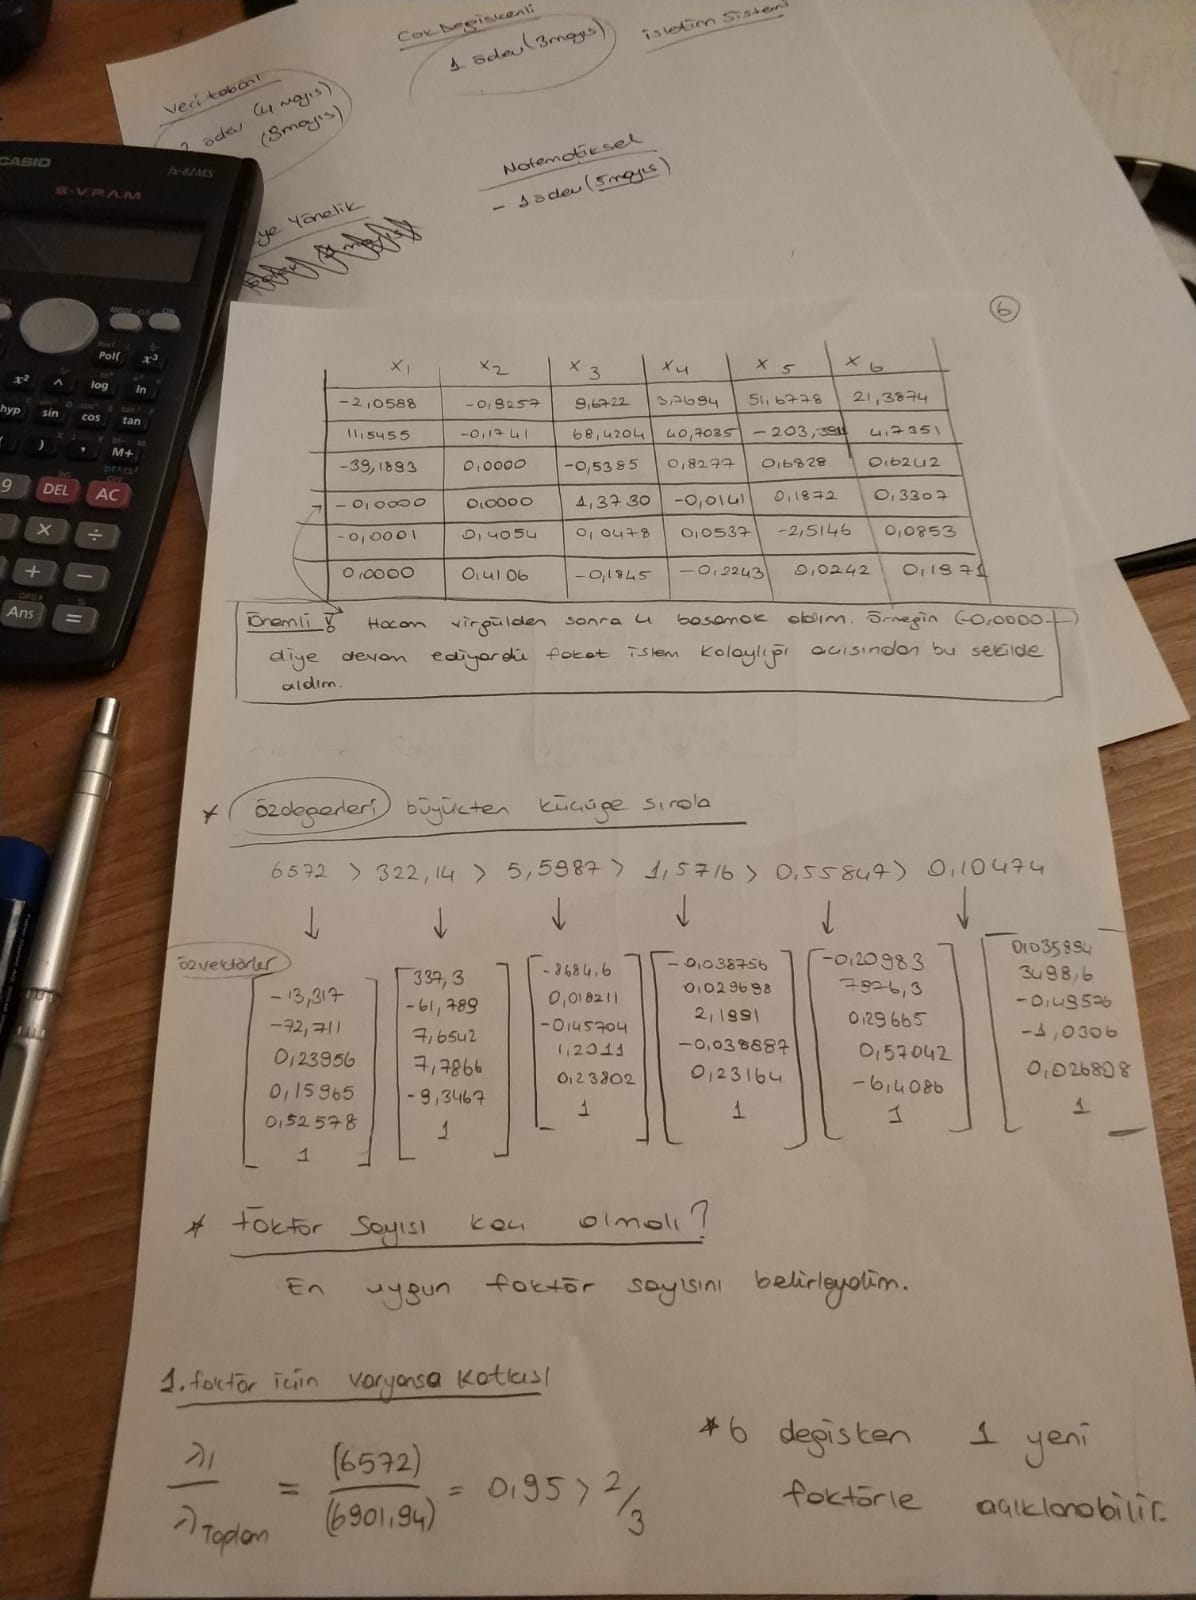 Çok Değişkenli
1 ödev (3 mayıs)
işletim sistemi
Veri tabanı
2 ödev (4 mayıs)
(8 mayıs)
Matematiksel
- 1 ödev (5 mayıs)
ye Yönelik
CASIO
fx-82MS
S-V.P.A.M.
MODE CLR ON
Pol( x³
x² ^ log ln
hyp sin cos tan
) , M+
9 DEL AC
× ÷
+ −
Ans =
6
x1 x2 x3 x4 x5 x6
-2,0588 -0,9257 9,6722 3,7694 51,6778 21,3874
11,5455 -0,1741 68,4204 40,7035 4,7351
-39,1893 0,0000 -0,5385 0,8277 0,6828 0,6242
-0,0000 0,0000 1,3730 -0,0141 0,1872 0,3307
-0,0001 0,4054 0,0478 0,0537 -2,5146 0,0853
0,0000 0,4106 -0,1845 -0,2243 0,0242 0,1971
Önemli ! Hocam virgülden sonra 4 basamak aldım. Örneğin (-0,0000...)
diye devam ediyordu fakat işlem kolaylığı açısından bu şekilde
aldım.
* özdeğerleri büyükten küçüğe sırala
6572 > 322,14 > 5,5987 > 1,5716 > 0,55847 > 0,10474
↓ ↓ ↓ ↓ ↓ ↓
özvektörler
-13,317 337,3 -8684,6 -0,038756 -0,20983 0,035894
-72,711 -61,789 0,018211 0,029698 7926,3 3498,6
0,23956 7,6542 -0,45704 2,1991 0,29665 -0,49576
0,15965 7,7866 1,2011 -0,038887 0,57042 -1,0306
0,52578 -9,3467 0,23802 0,23164 -6,4086 0,026808
1 1 1 1 1 1
* Faktör Sayısı kaç olmalı?
En uygun faktör sayısını belirleyelim.
1. faktör için varyansa katkısı
λ1 / λToplam = (6572) / (6901,94) = 0,95 > 2/3
* 6 değişken 1 yeni
faktörle açıklanabilir.